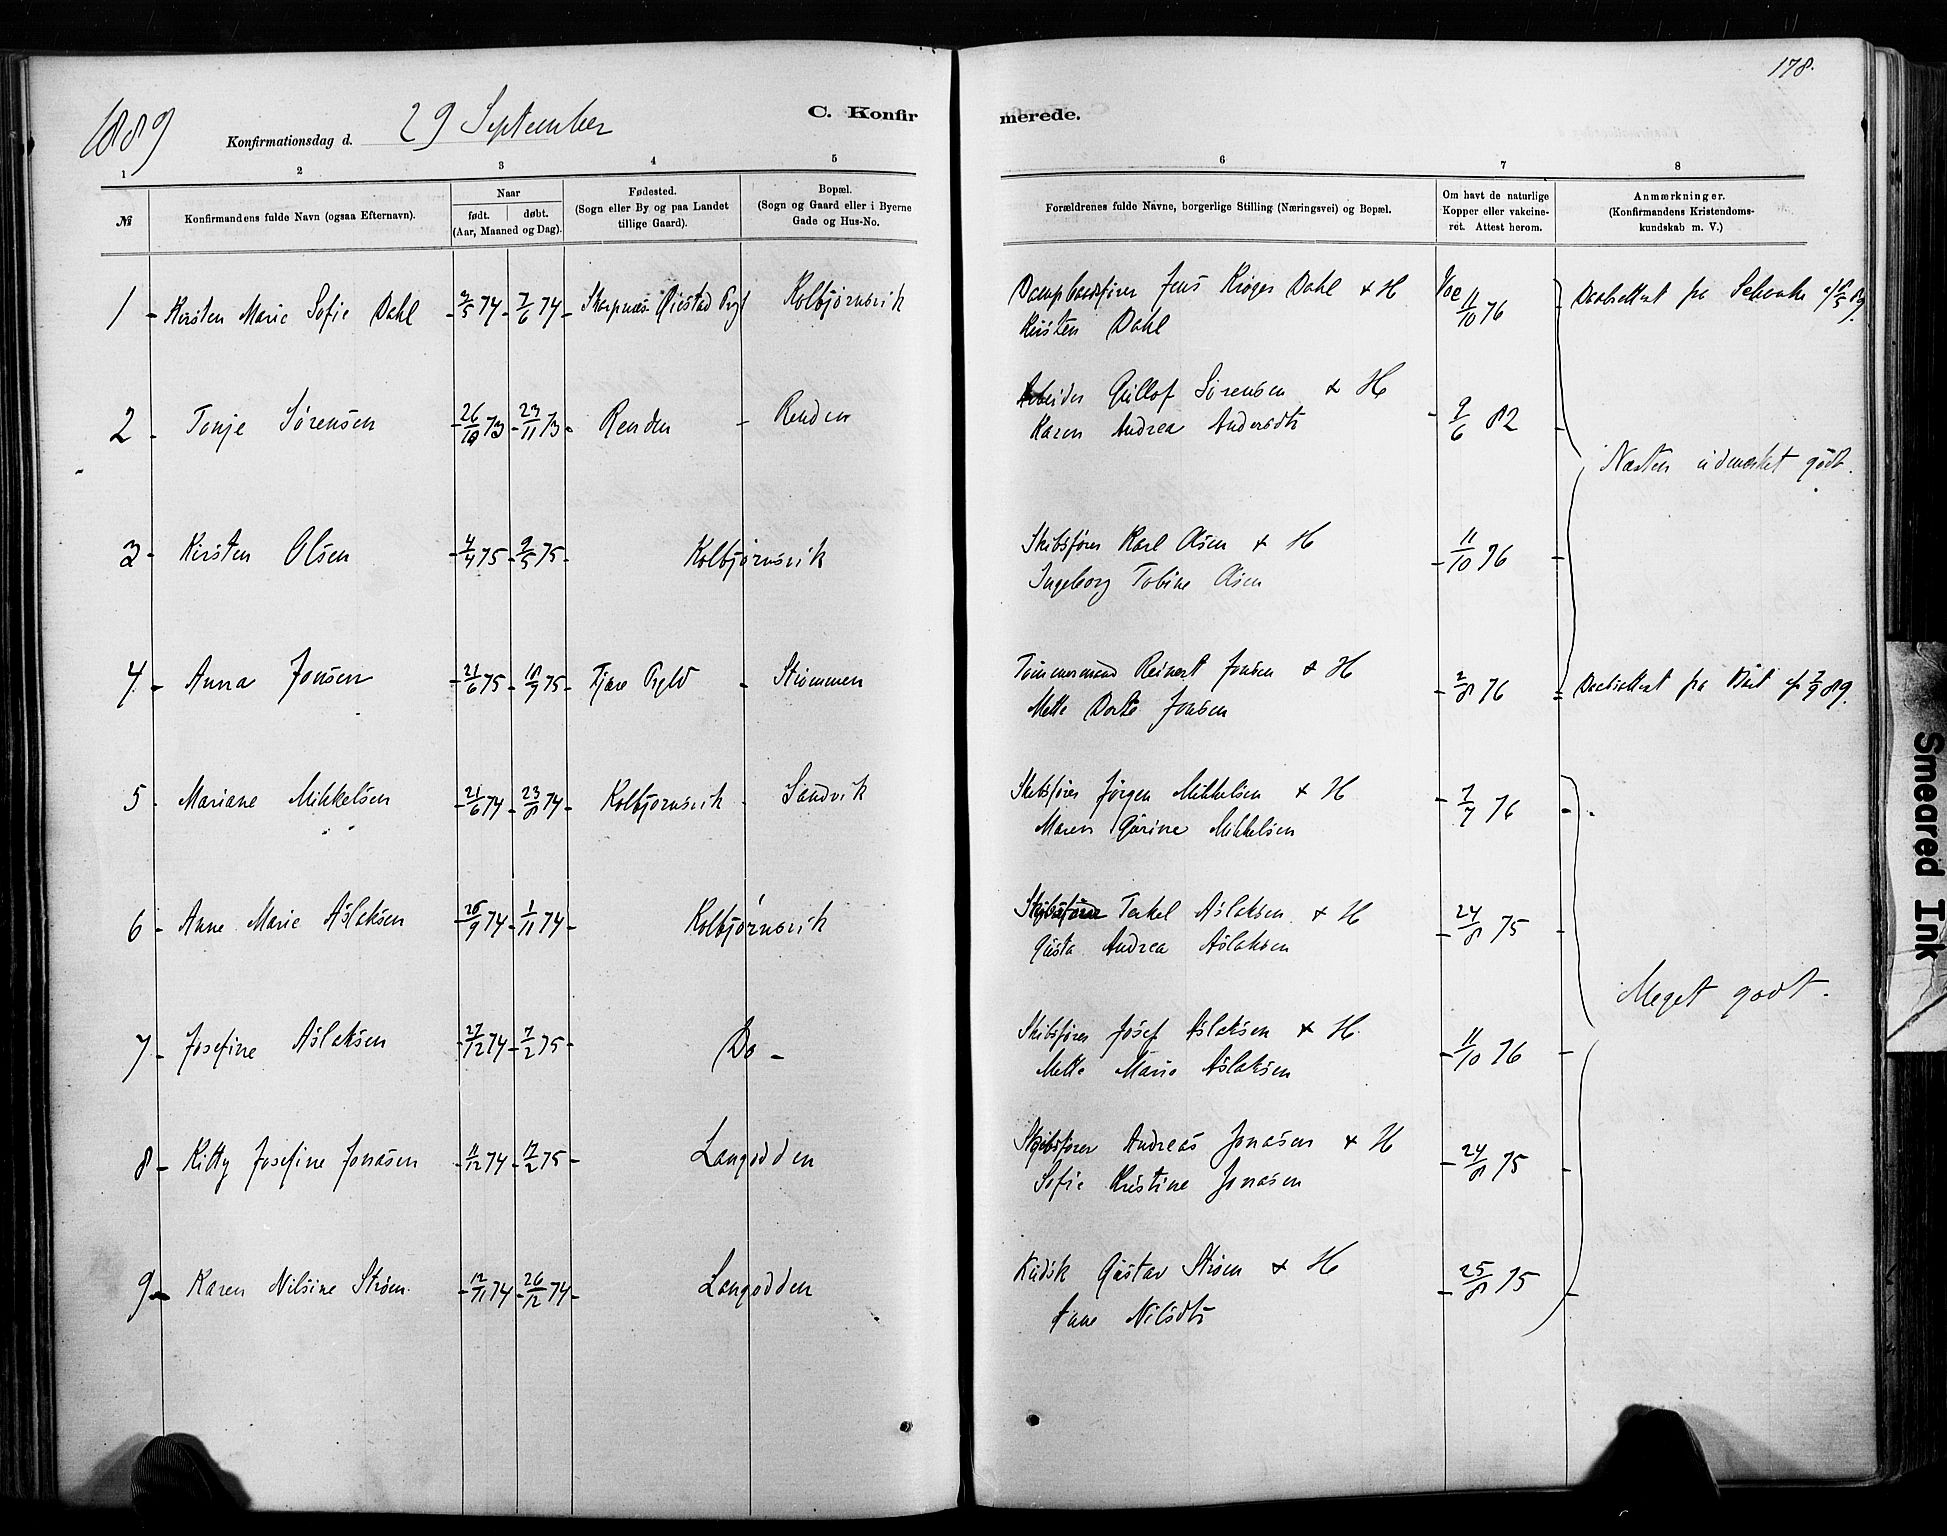 178.
1889
Konfirmationsdag d. 29 September
C. Konfir
merede.
1 2 3 4 5 6 7 8
№
Konfirmandens fulde Navn (ogsaa Efternavn).
Naar
født. døbt.
(Aar, Maaned og Dag).
Fødested.
(Sogn eller By og paa Landet
tillige Gaard).
Bopæl.
(Sogn og Gaard eller i Byerne
Gade og Hus-No.
Forældrenes fulde Navne, borgerlige Stilling (Næringsvei) og Bopæl.
Om havt de naturlige
Kopper eller vakcine-
ret. Attest herom.
Anmærkninger.
(Konfirmandens Kristendoms-
kundskab m. V.)
1 Kirsten Marie Sofie Dahl 2/5 74 7/6 74 Øiestad Kolbjørnsvik Jens Krøger Dahl & H Vac 11/10 76 Daabsattest fra
Kirsten Dahl
2 Tonje Sørensen 26/10 73 23/11 73 Renden Renden Arbeider Gullof Sørensen & H 9/6 82
Karen Andrea Andersdtr
Næsten udmærket godt.
3 Kirsten Olsen 4/4 75 9/5 75 Kolbjørnsvik Skibsfører Karl Olsen & H 11/10 76
Ingeborg Tobine Olsen
4 Anna Jonsen 21/6 75 18/7 75 Strømmen Tømmermand Reinert Jonsen & H 2/8 76 Daabsattest fra
Mette Dorte Jonsen
5 Mariane Mikkelsen 21/6 74 23/8 74 Kolbjørnsvik Sandvik Skibsfører Jørgen Mikkelsen & H 7/7 76
Maren Gurine Mikkelsen
6 Anne Marie Aslaksen 26/9 74 1/11 74 Kolbjørnsvik Skibsfører Terkel Aslaksen & H 24/8 75
Gusta Andrea Aslaksen
Meget godt.
7 Josefine Aslaksen 27/12 74 7/2 75 Do Skibsfører Josef Aslaksen & H 11/10 76
Mette Marie Aslaksen
8 Kitty Josefine Jonasen 11/12 74 7/2 75 Langodden Skibsfører Andreas Jonasen & H 24/8 75
Sofie Kristine Jonasen
9 Karen Nilsine Strøm 12/11 74 26/12 74 Langodden Kudsk Gustav Strøm & H 25/8 75
Anne Nilsdtr
Smeared Ink